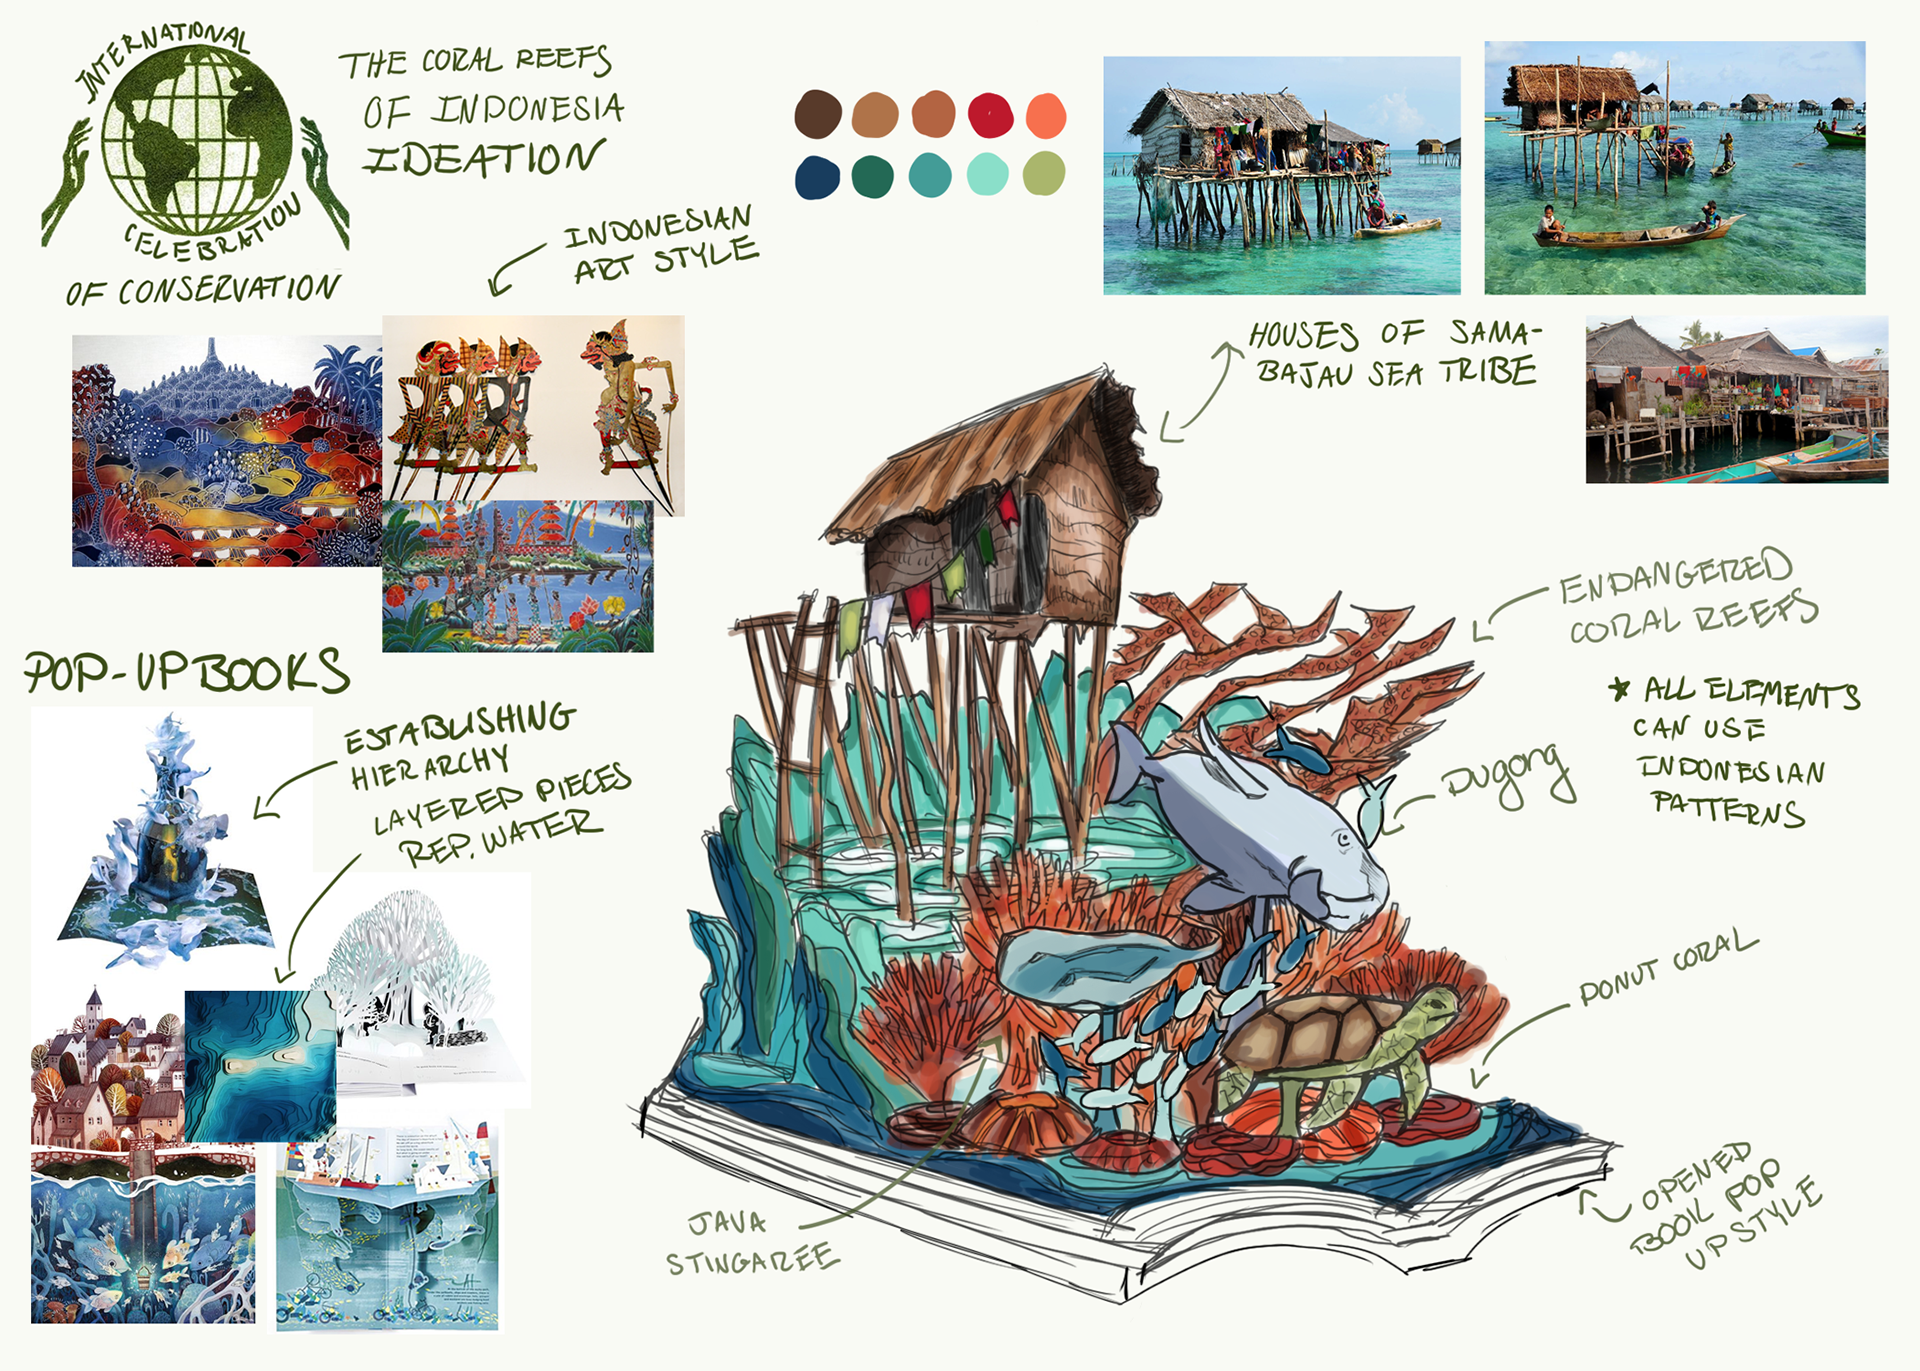 INTERNATIONAL
CELEBRATION
OF CONSERVATION
THE CORAL REEFS
OF INDONESIA
IDEATION
INDONESIAN
ART STYLE
HOUSES OF SAMA-
BAJAU SEA TRIBE
ENDANGERED
CORAL REEFS
★ ALL ELEMENTS
CAN USE
INDONESIAN
PATTERNS
POP-UP BOOKS
ESTABLISHING
HIERARCHY
LAYERED PIECES
REP. WATER
Dugong
DONUT CORAL
JAVA
STINGAREE
OPENED
BOOK POP
UP STYLE